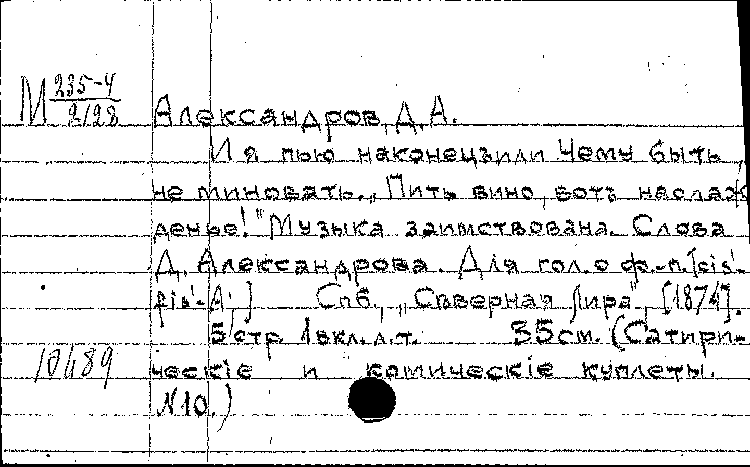 М 235-4
2/28
Александров, Д. А.
И я пью наконецъ или Чему быть,
не миновать. „Пить вино, вотъ наслаж
денье!" Музыка заимствована. Слова
Д. Александрова. Для гол. с ф.-п. [cis'-
fis'-A;] Спб., „Северная Лира", [1874].
5 стр. 1 вкл. л. т. 35 см. (Сатири-
ческіе и комическіе куплеты.
N 10.)
10489